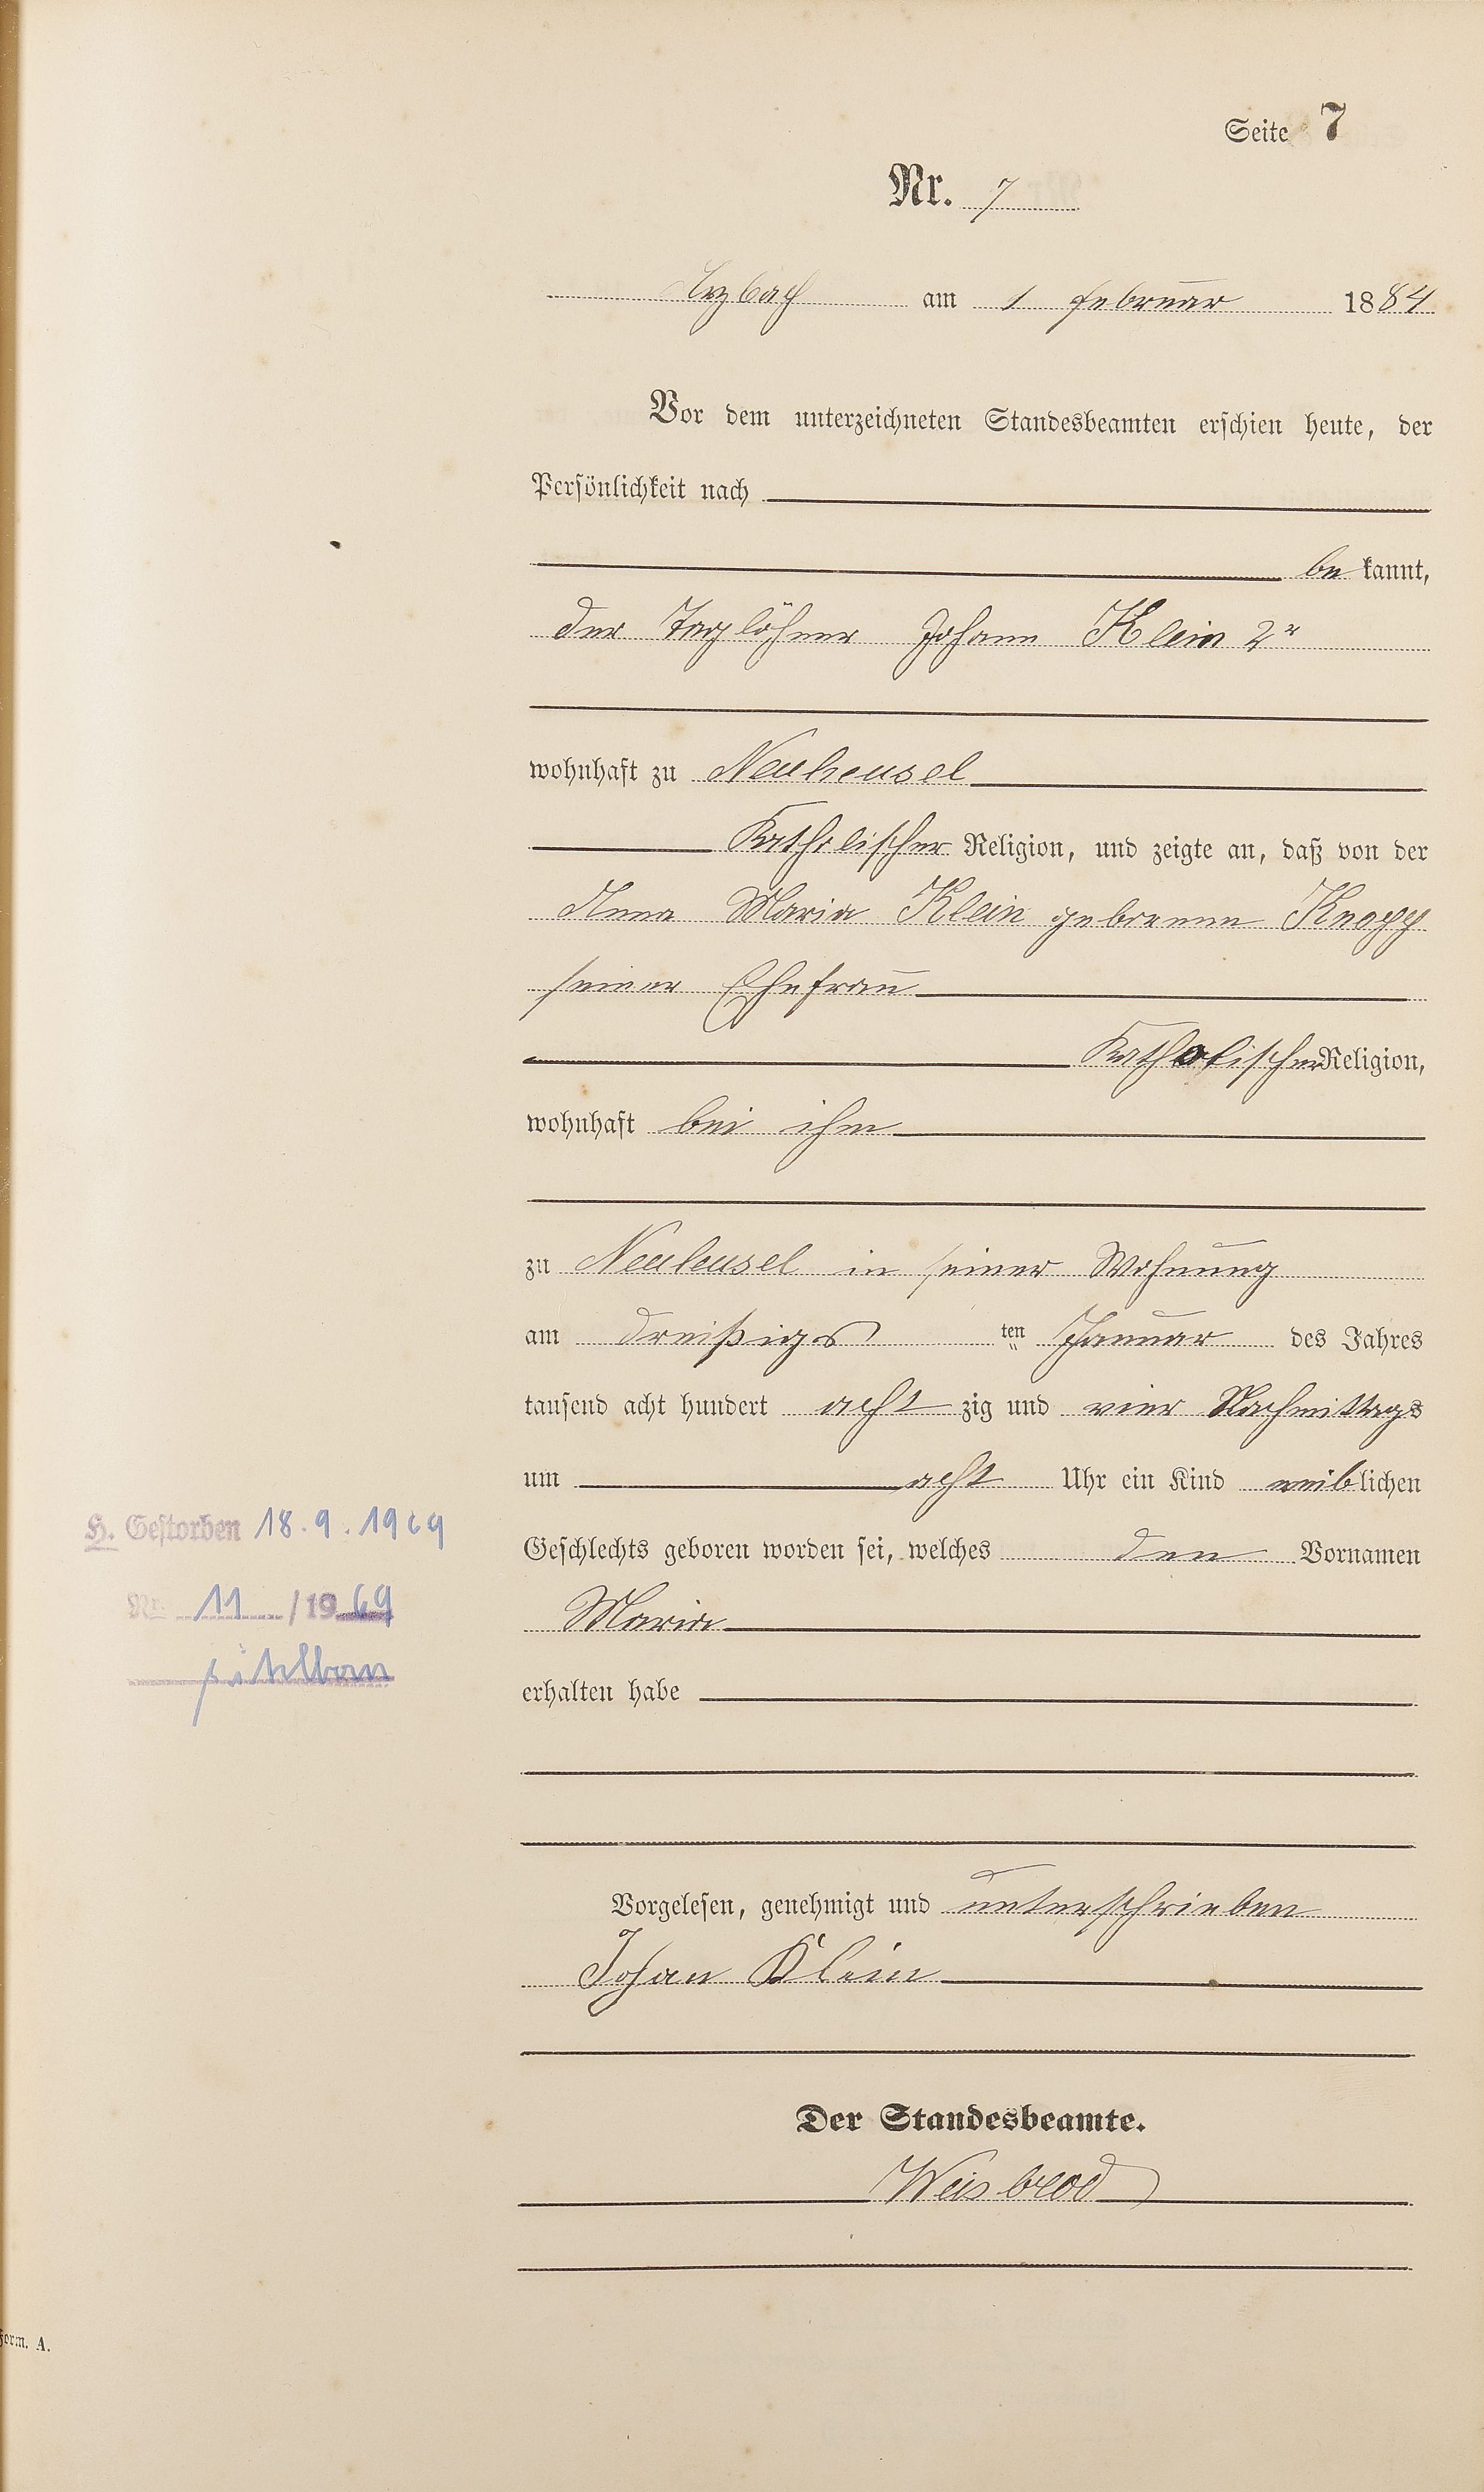 Seite 7
Nr. 7
Arzbach am 1 Februar 1884
Vor dem unterzeichneten Standesbeamten erschien heute, der
Persönlichkeit nach
be kannt,
der Taglöhner Johann Klein 2r
wohnhaft zu Neuheusel
Katholischer Religion, und zeigte an, daß von der
Anna Maria Klein geborenen Knopp
seiner Ehefrau
Katholischer Religion,
wohnhaft bei ihm
zu Neuheusel in seiner Wohnung
am dreißigs ten Januar des Jahres
tausend acht hundert acht zig und vier Nachmittags
um acht Uhr ein Kind weiblichen
H. Gestorben 18.9.1969
Geschlechts geboren worden sei, welches den Vornamen
Nr. 11 / 1969
Maria
erhalten habe
Vorgelesen, genehmigt und unterschrieben
Johan Klein
Der Standesbeamte.
Weisbrod
Form. A.